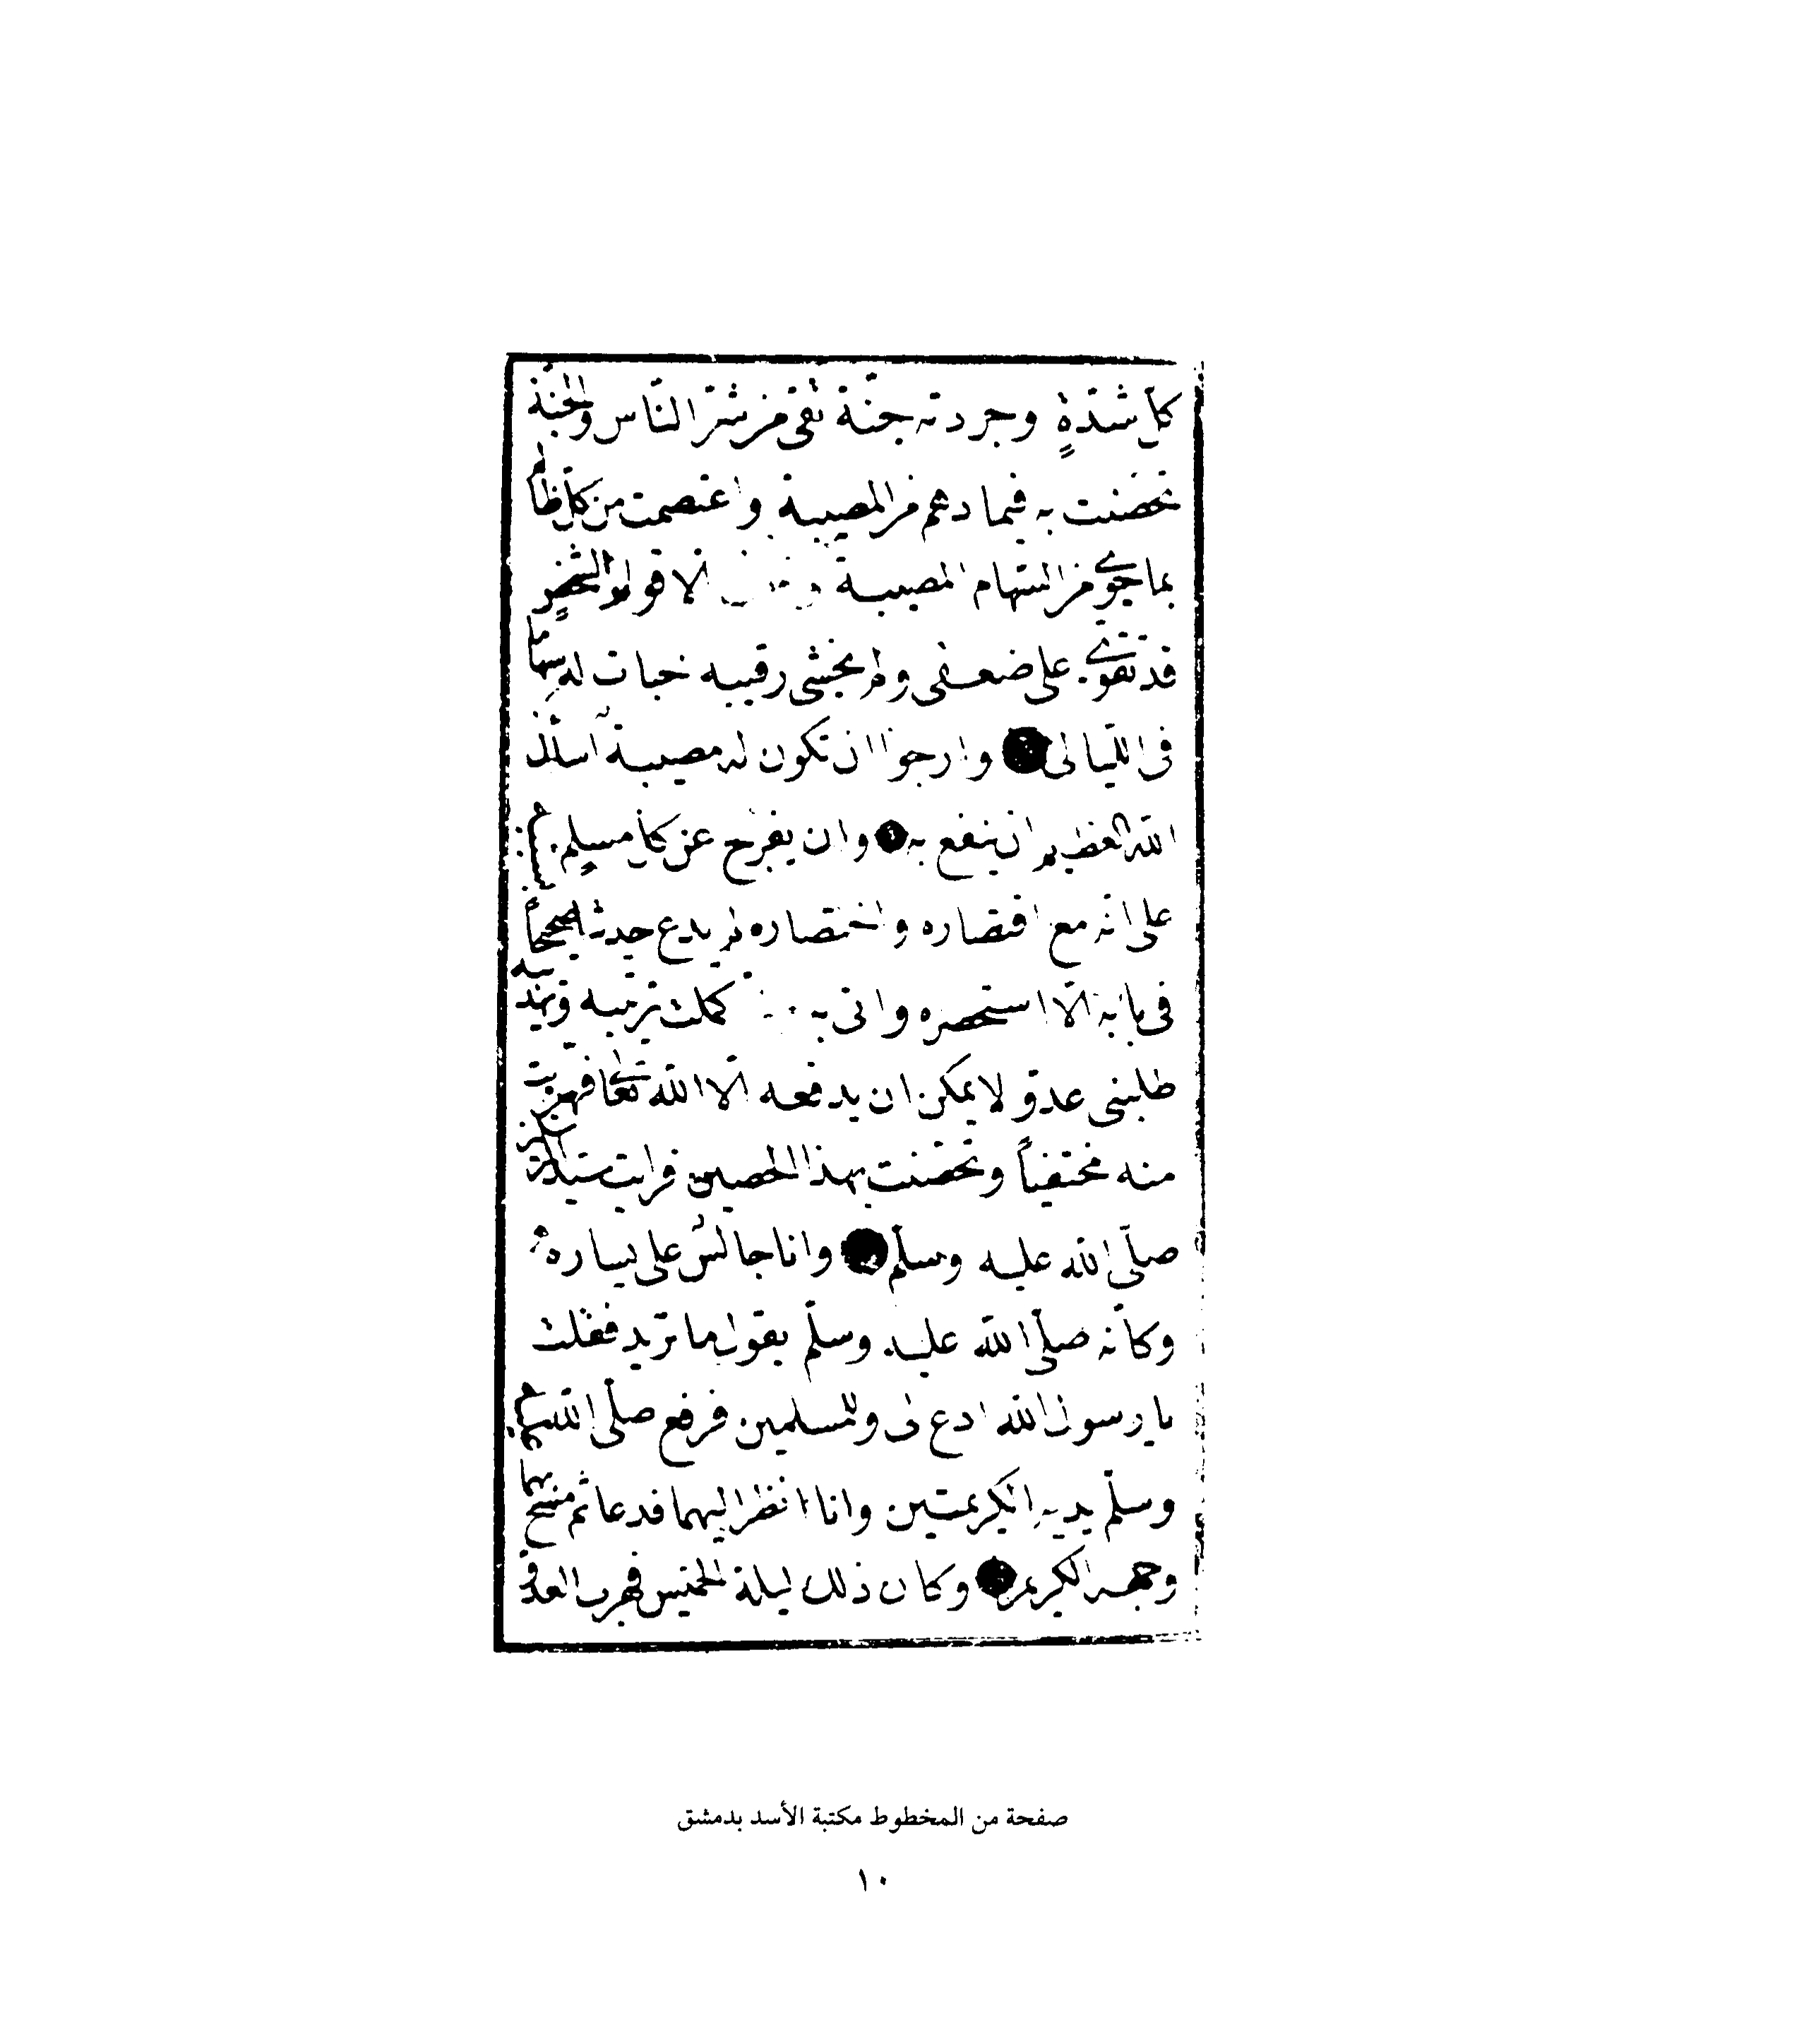 كلّ شدّةٍ وجردته جنّة تقى من شرّ النّاس والجنّة
تحصّنت به فيما دهم من المصيبة واعتصمت من كلّ ظالم
بما حوى من السّهام المصيبة الا قولوا لشخصٍ
قد تقوى على ضعفى ولم يخشى رقيبه خبات له سهاما
فى اللّيالى وارجوا ان تكون له مصيبة اسال
الله العظيم ان ينفع به وان يفرّج عن كل مسلمٍ
على انّه مع اقتصاره واختصاره لم يدع حديثا صحيحاً
فى بابه الّا استحضره واتى به كملت ترتيبه وتهذيبه
طلبنى عدوّ لا يمكن ان يدفعه الّا الله تعالى فهربت
منه مختفياً وتحصّنت بهذا الحصين فرايت سيّد المرسلين
صلّى الله عليه وسلّم وانا جالسٌ على يساره
وكانّه صلّى الله عليه وسلّم يقول ما تريد فقلت
يا رسول الله ادع لى وللمسلمين فرفع صلّى الله عليه
وسلّم يديه الكريمتين وانا انظر اليهما فدعا ثمّ مسح بهما
وجهه الكريم وكان ذلك ليلة الخميس فهرب العدوّ
صفحة من المخطوط مكتبة الأسد بدمشق
١٠